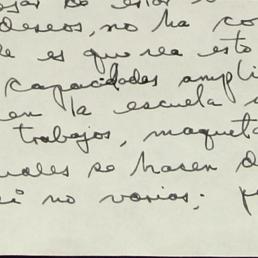 deseos, no ha co
e es que sea esto
capacidades ampli
en la escuela
trabajos, maqueta
uales se hasen d
i no varios; p